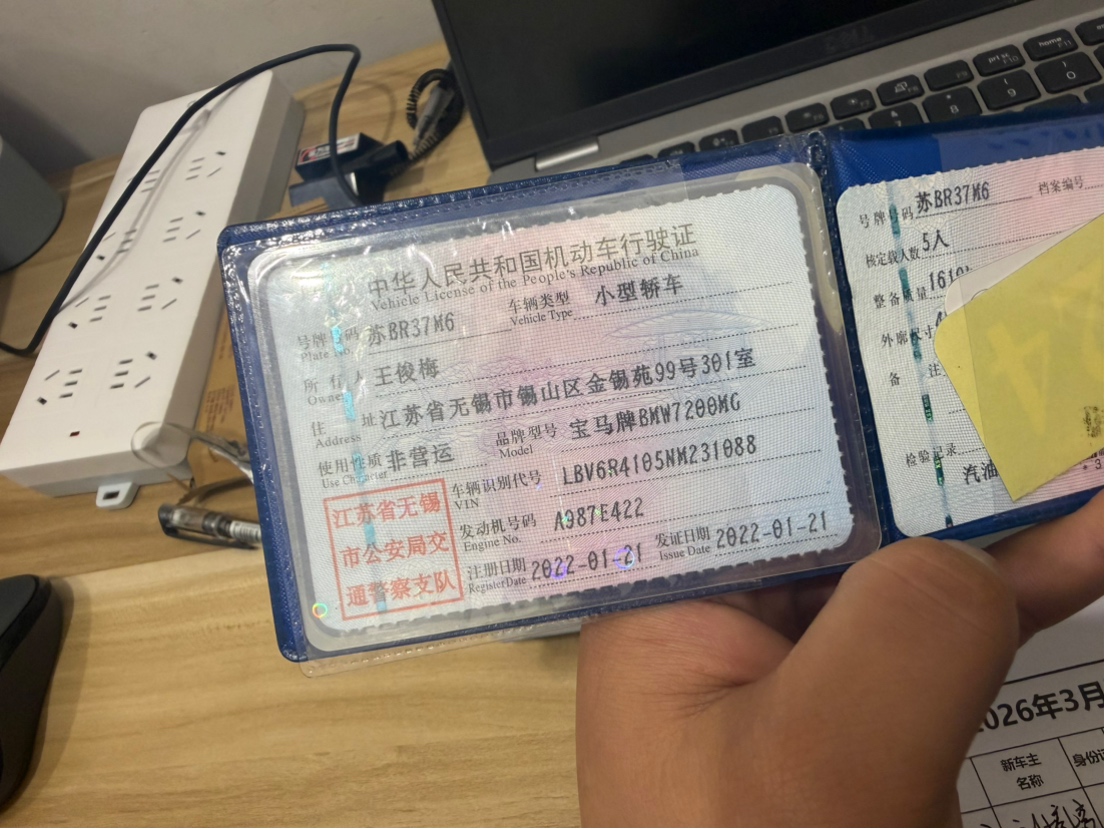 中华人民共和国机动车行驶证
Vehicle License of the People's Republic of China
号牌号码 苏BR37M6 车辆类型 小型轿车
Plate No. Vehicle Type
所有人 王俊梅
Owner
住址 江苏省无锡市锡山区金锡苑99号301室
Address
使用性质 非营运 品牌型号 宝马牌BMW7200MG
Use Character Model
江苏省无锡
市公安局交
通警察支队
车辆识别代号 LBV6R4105NM231088
VIN
发动机号码 A987E422
Engine No.
注册日期 2022-01-21 发证日期 2022-01-21
Register Date Issue Date
号牌号码 苏BR37M6 档案编号
核定载人数 5人
整备质量 1610
外廓尺寸
备注
检验记录
汽油
DELL
home
8
9
0
2026年3月
新车主
名称